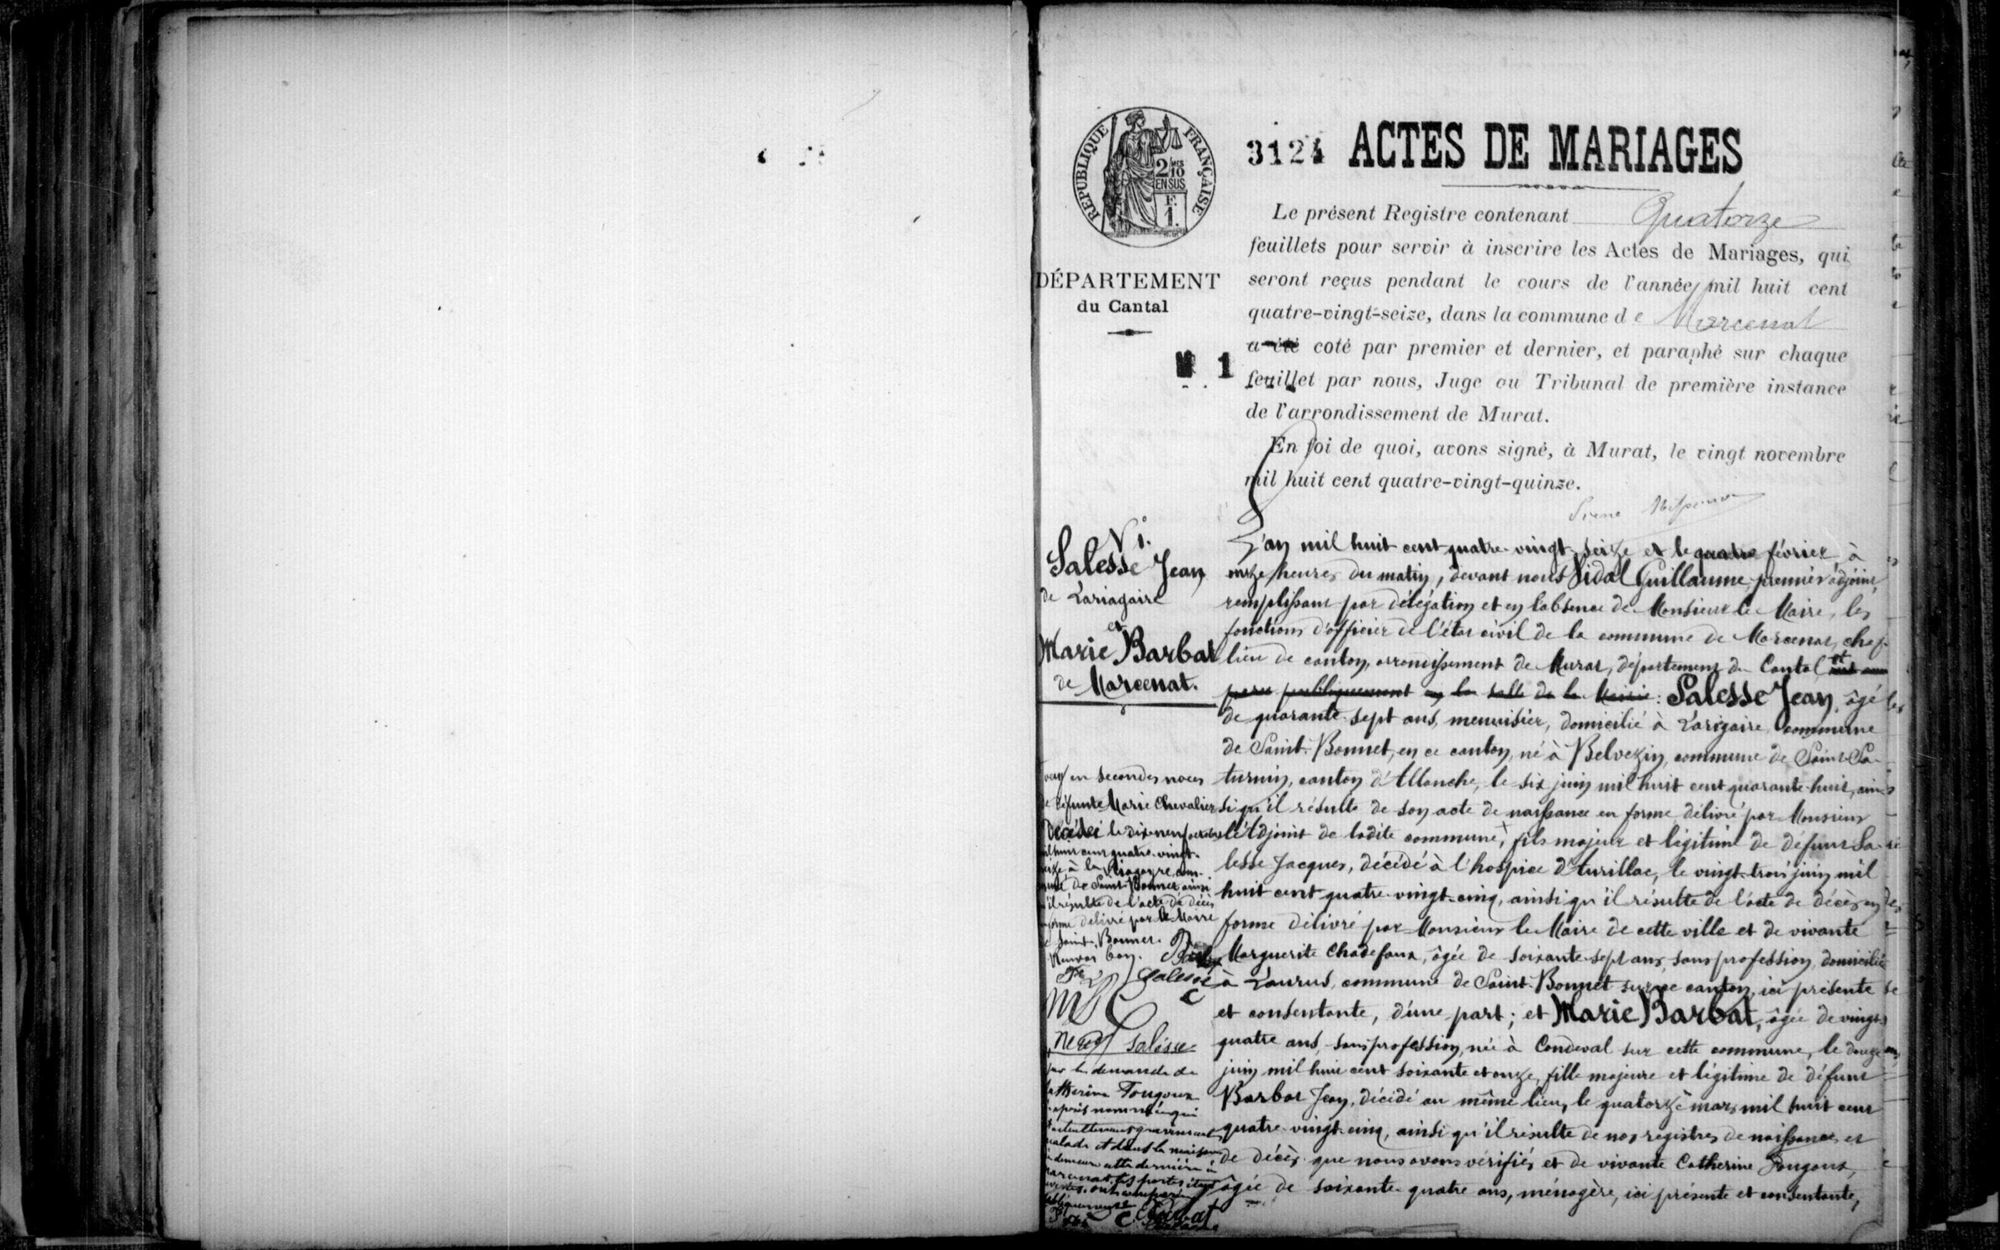 RÉPUBLIQUE FRANÇAISE
2/10 MES
EN SUS
F.
1.
DÉPARTEMENT
du Cantal
N 1
3124 ACTES DE MARIAGES
Le présent Registre contenant Quatorze
feuillets pour servir à inscrire les Actes de Mariages, qui
seront reçus pendant le cours de l'année mil huit cent
quatre-vingt-seize, dans la commune de Marcenat
a été coté par premier et dernier, et paraphé sur chaque
feuillet par nous, Juge au Tribunal de première instance
de l'arrondissement de Murat.
En foi de quoi, avons signé, à Murat, le vingt novembre
mil huit cent quatre-vingt-quinze.
N 1.
Salesse Jean
de Lariagaire
et
Marie Barbat
de Marcenat.
L'an mil huit cent quatre-vingt-seize et le quatre février à
onze heures du matin, devant nous Vidal Guillaume premier adjoint
remplissant par délégation et en l'absence de Monsieur le Maire, les
fonctions d'officier de l'état civil de la commune de Marcenat, chef-
lieu de canton, arrondissement de Murat, département du Cantal
publiquement en la salle de la Mairie: Salesse Jean, âgé
de quarante-sept ans, menuisier, domicilié à Larigaire, commune
de Saint-Bonnet, en ce canton, né à Belvezin, commune de Saint-Sa-
turnin, canton d'Allanche, le six juin mil huit cent quarante-huit, ain-
si qu'il résulte de son acte de naissance en forme délivré par Monsieur
l'Adjoint de ladite commune, fils majeur et légitime de défunt Sa-
lesse Jacques, décédé à l'hospice d'Aurillac, le vingt-trois juin mil
huit cent quatre-vingt-cinq, ainsi qu'il résulte de l'acte de décès en
forme délivré par Monsieur le Maire de cette ville et de vivante
Marguerite Chadefaux, âgée de soixante-sept ans, sans profession, domiciliée
à Laurus, commune de Saint-Bonnet sur ce canton, ici présente
et consentante, d'une part; et Marie Barbat, âgée de vingt-
quatre ans, sans profession, née à Condeval sur cette commune, le douze
juin mil huit cent soixante et onze, fille majeure et légitime de défunt
Barbat Jean, décédé au même lieu, le quatorze mars mil huit cent
quatre-vingt-cinq, ainsi qu'il résulte de nos registres de naissance et
de décès que nous avons vérifiés et de vivante Catherine Fougoux,
âgée de soixante-quatre ans, ménagère, ici présente et consentante,
veuf en secondes noces
de défunte Marie Chevalier
décédée le dix-neuf octobre
mil huit cent quatre-vingt-
à la com-
mune de Saint-Bonnet ainsi
qu'il résulte de l'acte de décès
en forme délivré par le Maire
de Saint-Bonnet.
Renvoi bon.
Salesse
Salesse
sur la demande de
Catherine Fougoux
ci-après nommée qui
malade et dans la maison
demeure cette dernière à
Marcenat, les portes étant
ouvertes, ont comparu
publiquement
C. Barbat